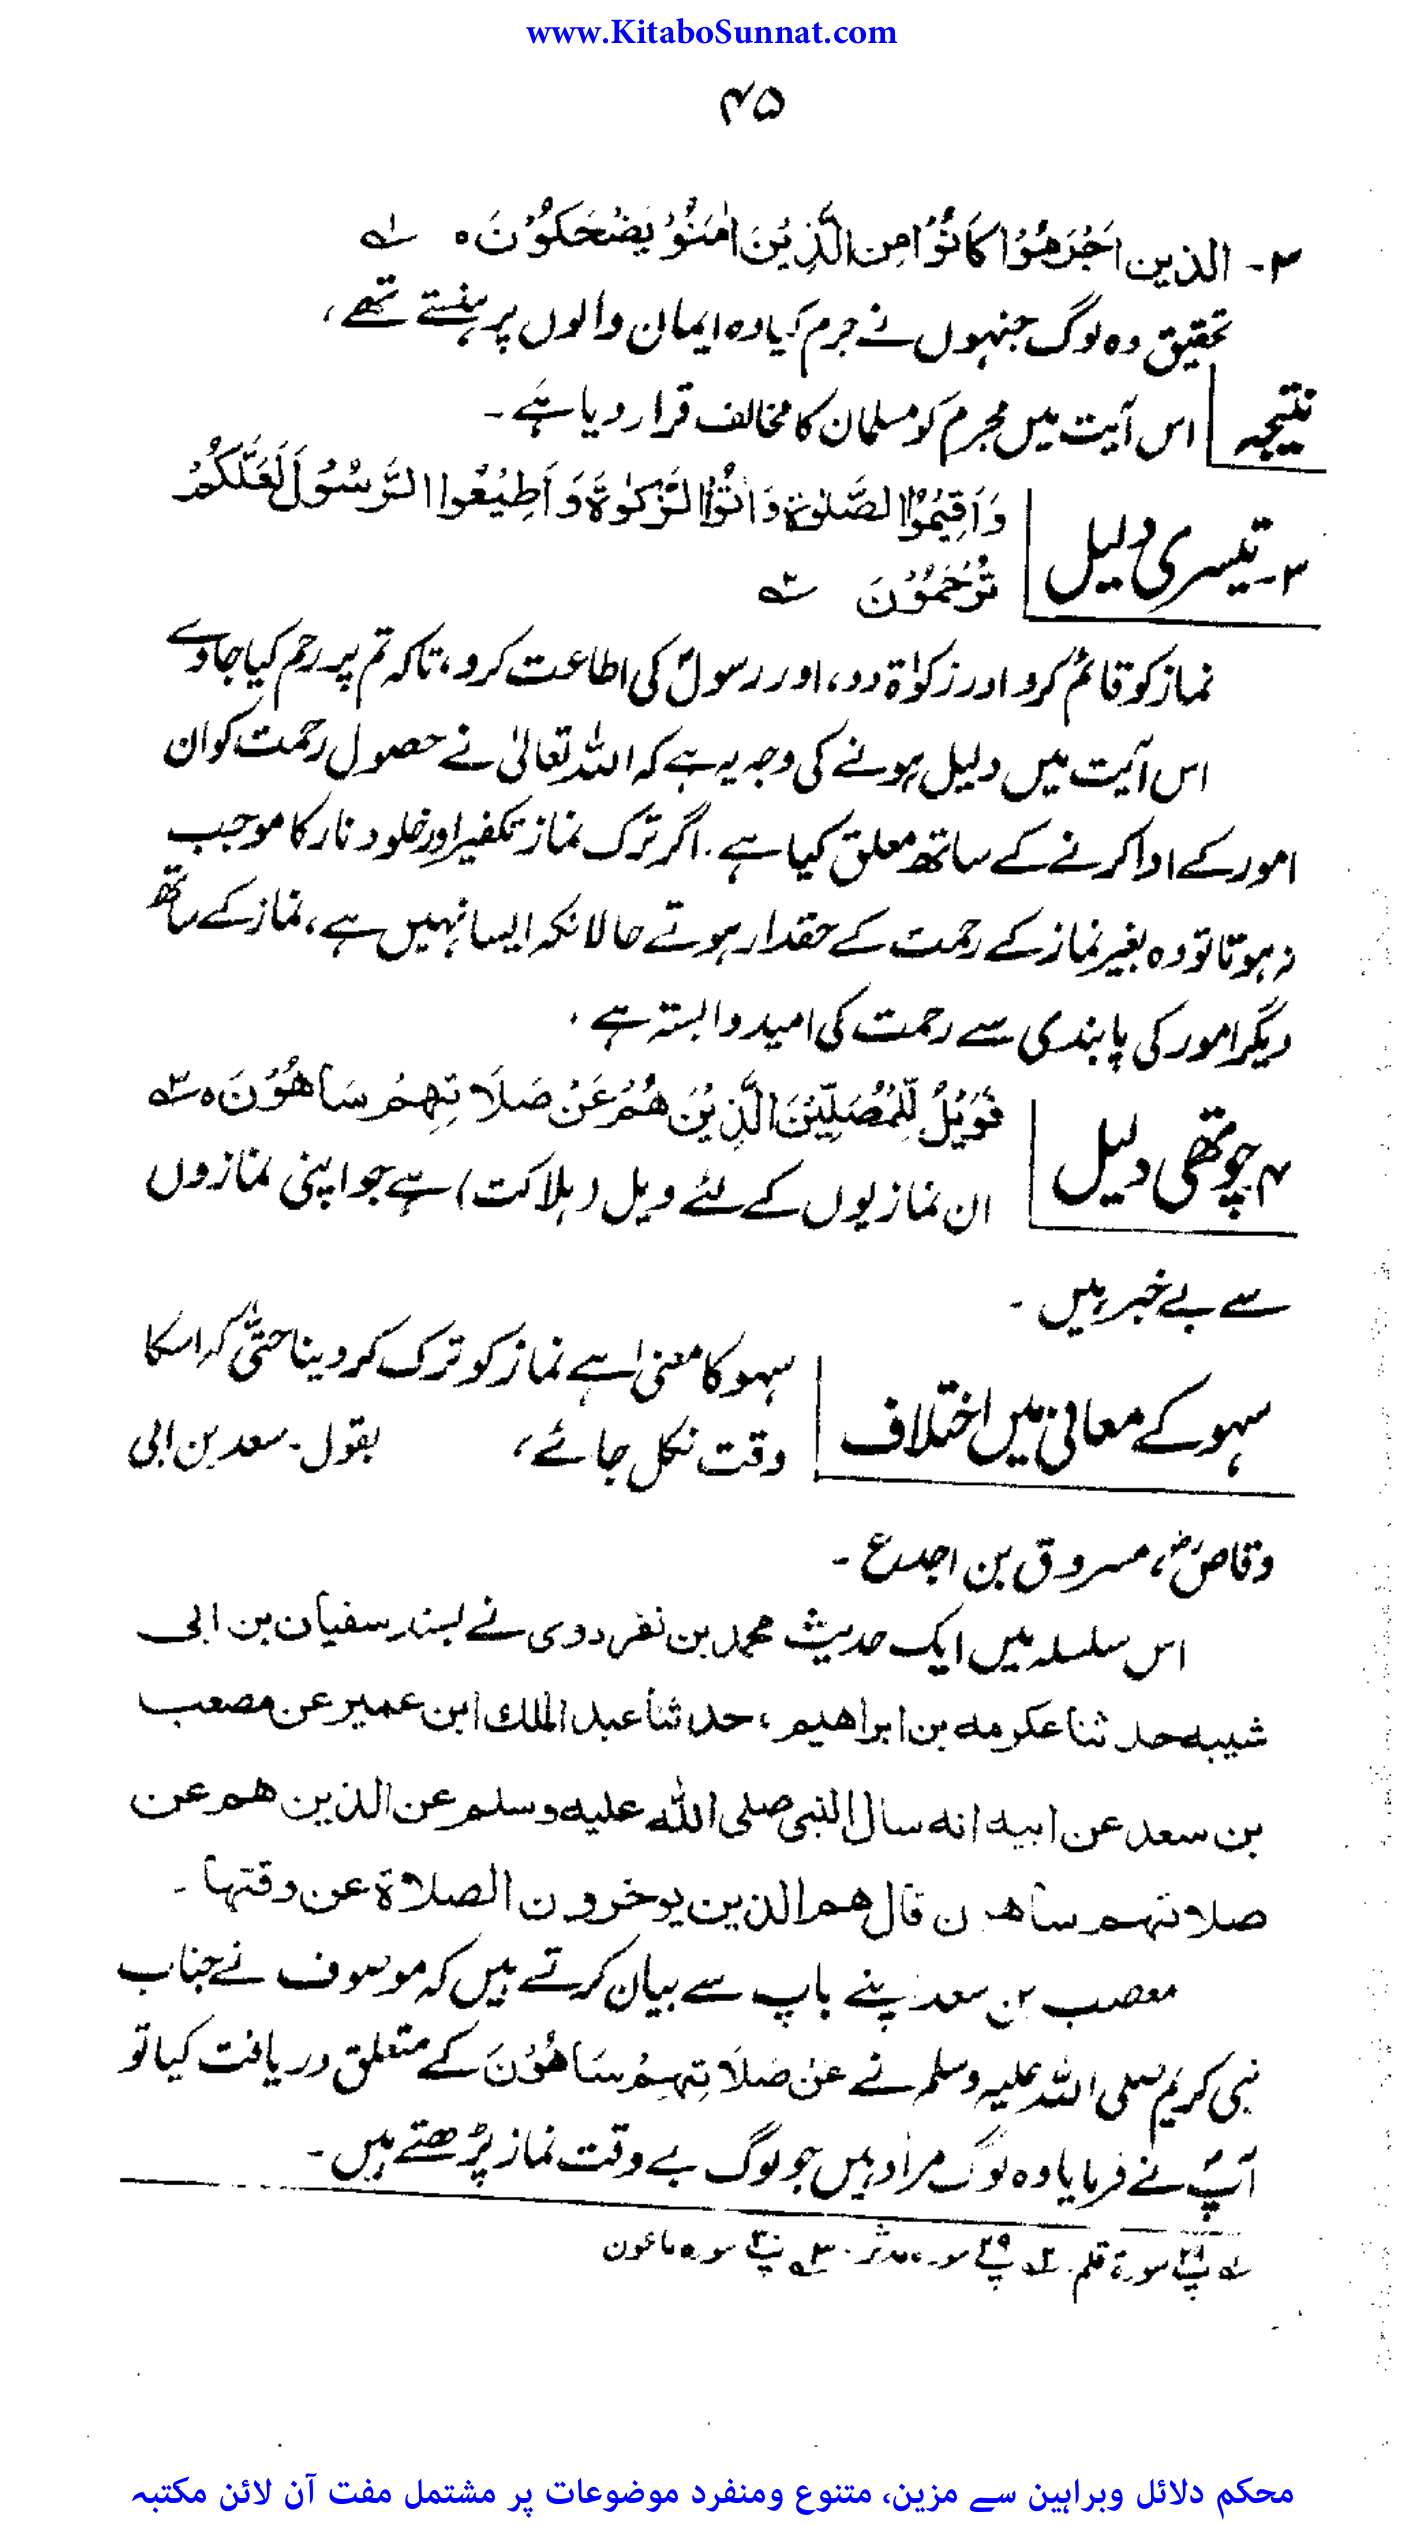 www.KitaboSunnat.com
۴۵
۳- الذین اَجْرَمُوْا کَانُوْا مِن الَّذِیْنَ اٰمَنُوْ یَضْحَکُوْنَ ہ ۱ے
تحقیق وہ لوگ جنہوں نے جرم کیا وہ ایمان والوں پر ہنستے تھے،
نتیجہ اس آیت میں مجرم کو مسلمان کا مخالف قرار دیا ہے ۔
۳- تیسری دلیل وَاَقِیْمُوْا الصَّلٰوۃَ وَاٰتُوْا الزَّکٰوۃَ وَاَطِیْعُوا الرَّسُوْلَ لَعَلَّکُمْ
تُرْحَمُوْنَ ۲ے
نماز کو قائم کرو اور زکوٰۃ دو، اور رسولؐ کی اطاعت کرو، تاکہ تم پر رحم کیا جاوے
اس آیت میں دلیل ہونے کی وجہ یہ ہے کہ اللہ تعالیٰ نے حصول رحمت کو ان
امور کے ادا کرنے کے ساتھ معلق کیا ہے ۔ اگر ترک نماز تکفیر اور خلود نار کا موجب
نہ ہوتا تو وہ بغیر نماز کے رحمت کے حقدار ہوتے حالانکہ ایسا نہیں ہے، نماز کے ساتھ
دیگر امور کی پابندی سے رحمت کی امید وابستہ ہے ۔
۴ چوتھی دلیل فَوَیْلٌ لِّلْمُصَلِّیْنَ الَّذِیْنَ هُمْ عَنْ صَلَاتِهِمْ سَاهُوْنَ ہ ۳ے
ان نمازیوں کے لئے ویل (ہلاکت) ہے جو اپنی نمازوں
سے بے خبر ہیں ۔
سہو کے معانی میں اختلاف سہو کا معنیٰ ہے نماز کو ترک کر دینا حتیٰ کہ اسکا
وقت نکل جائے، بقول ۔ سعد بن ابی
وقاصؓ، مسروق بن اجدع ۔
اس سلسلہ میں ایک حدیث محمد بن نفر دوی نے بسند سفیان بن ابی
شیبه حدثنا عکرمه بن ابراهیم، حدثنا عبد الملك ابن عمیر عن مصعب
بن سعد عن ابیه انه سال النبی صلی الله علیه وسلم عن الذین هم عن
صلاتهم ساهون قال هم الذین یوخرون الصلاة عن وقتها ۔
معصب بن سعد اپنے باپ سے بیان کرتے ہیں کہ موصوف نے جناب
نبی کریم صلی اللہ علیہ وسلم نے عَنْ صَلَاتِهِمْ سَاهُوْنَ کے متعلق دریافت کیا تو
آپؐ نے فرمایا وہ لوگ مراد ہیں جو لوگ بے وقت نماز پڑھتے ہیں ۔
۱ے پ۲۹ سورۃ قلم ۔ ۲ے پ۲۹ سورہ مدثر ۔ ۳ے پ۳۰ سورہ ماعون
محکم دلائل وبراہین سے مزین، متنوع ومنفرد موضوعات پر مشتمل مفت آن لائن مکتبہ